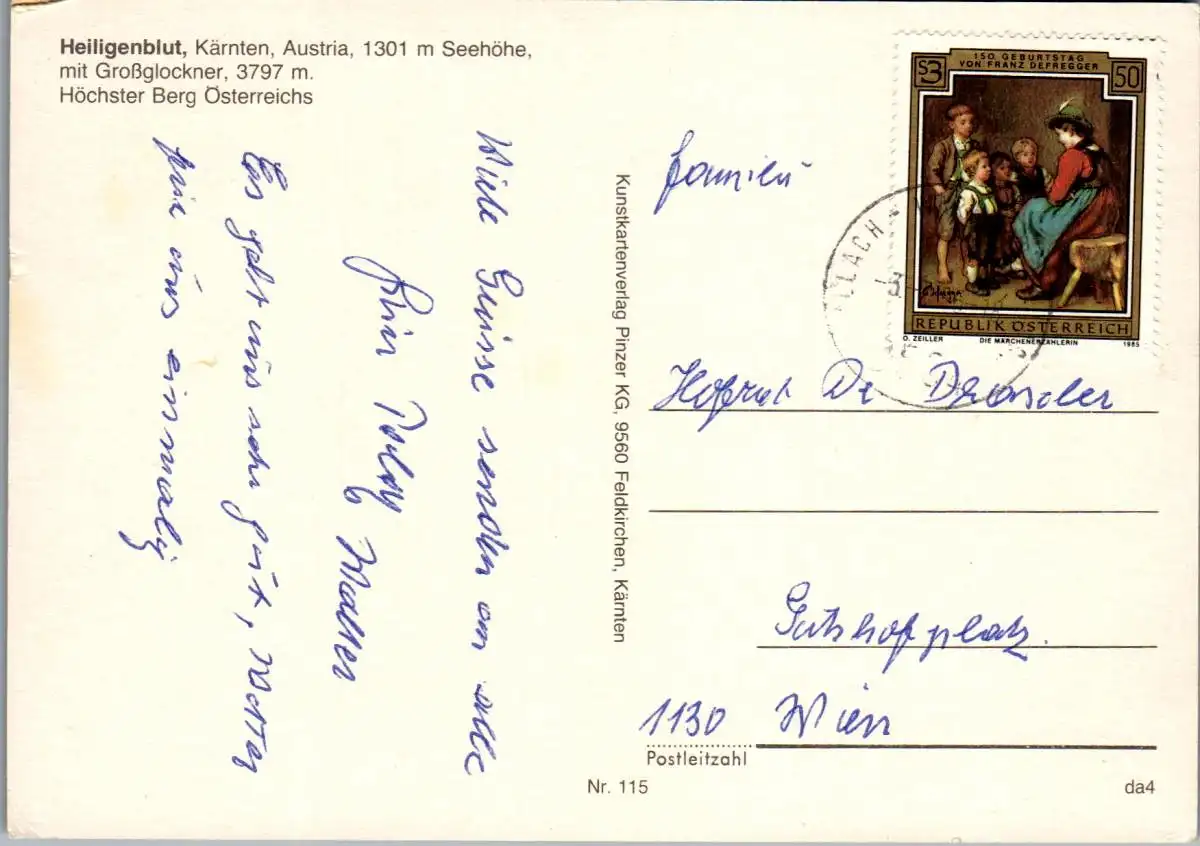 Heiligenblut, Kärnten, Austria, 1301 m Seehöhe,
mit Großglockner, 3797 m.
Höchster Berg Österreichs
Viele Grüsse senden an alle
Walter
Es geht uns sehr gut, Wetter
prima uns einmalig
Kunstkartenverlag Pinzer KG, 9560 Feldkirchen, Kärnten
150. GEBURTSTAG
VON FRANZ DEFREGGER
S3 50
REPUBLIK ÖSTERREICH
O. ZEILLER DIE MÄRCHENERZÄHLERIN 1985
LLACH
Familie
Hofrat Dr
platz.
1130 Wien
Postleitzahl
Nr. 115 da4